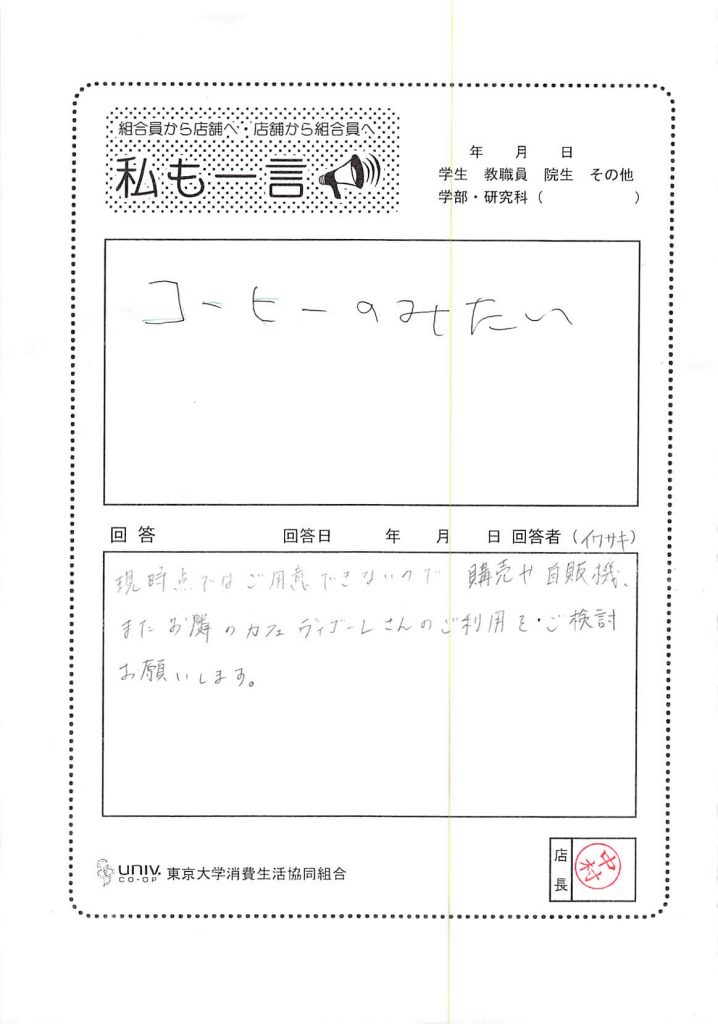 組合員から店舗へ・店舗から組合員へ
私も一言
年 月 日
学生 教職員 院生 その他
学部・研究科（ ）
コーヒーのみたい
回答 回答日 年 月 日 回答者（イワサキ）
現時点ではご用意できないので、購売や自販機、
またお隣のカフェヴィゴーレさんのご利用を・ご検討
お願いします。
UNIV. CO-OP 東京大学消費生活協同組合
店長
中村